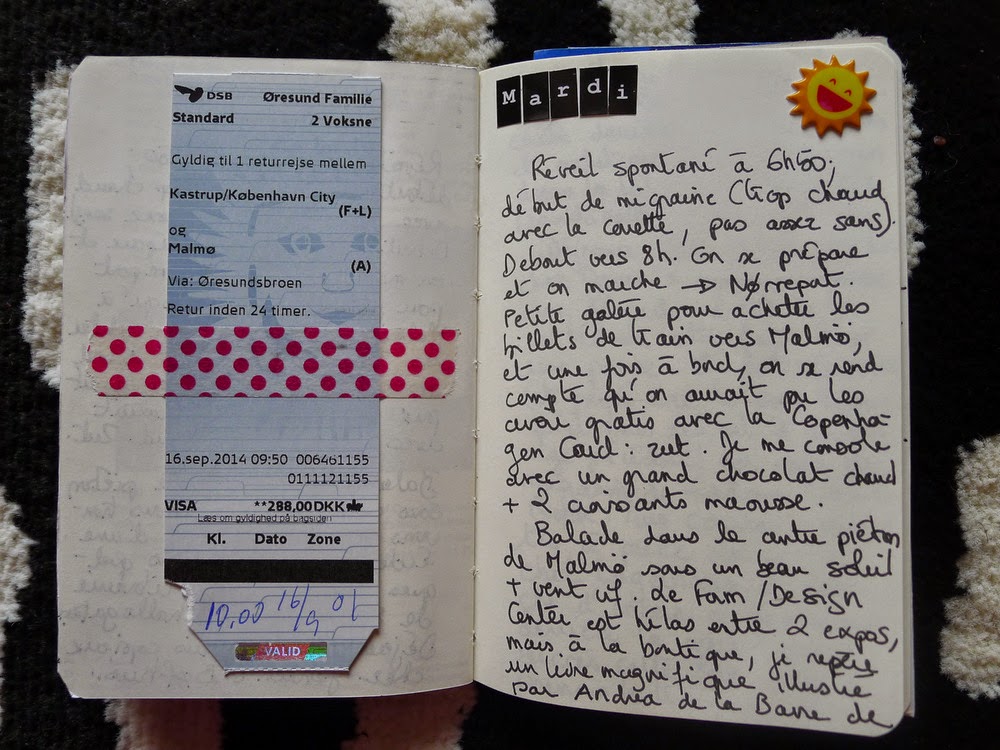 DSB Øresund Familie
Standard 2 Voksne
Gyldig til 1 returrejse mellem
Kastrup/København City
(F+L)
og
Malmø
(A)
Via: Øresundsbroen
Retur inden 24 timer.
16.sep.2014 09:50 006461155
0111121155
VISA **288,00DKK
Læs om gyldighed på bagsiden
Kl. Dato Zone
10.00 16/9 01
VALID
Mardi
Réveil spontané à 6h50;
début de migraine (trop chaud
avec la couette, pas assez sans).
Debout vers 8h. On se prépare
et on marche → Nørrepat.
Petite galère pour acheter les
billets de train vers Malmö,
et une fois à bord, on se rend
compte qu'on aurait pu les
avoir gratis avec la Copenha-
gen Card : zut. Je me console
avec un grand chocolat chaud
+ 2 croissants maousse.
Balade dans le centre piéton
de Malmö sous un beau soleil
+ vent vif. Le Form/Design
Center est hélas entre 2 expos,
mais à la boutique, je repère
un livre magnifique illustré
par Andréa de la Barre de